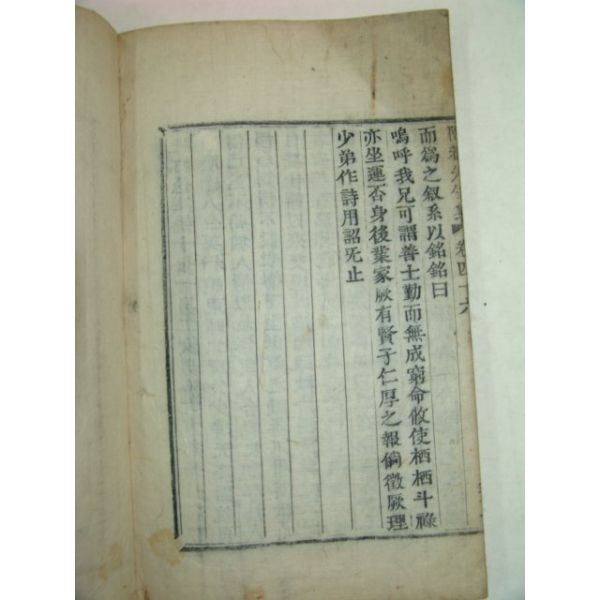 先生集 卷四十六
而爲之叙系以銘銘曰
嗚呼我兄可謂善士勤而無成窮命攸使栖栖斗祿
亦坐運否身後業家厥有賢子仁厚之報倘徵厥理
少弟作詩用詔无止